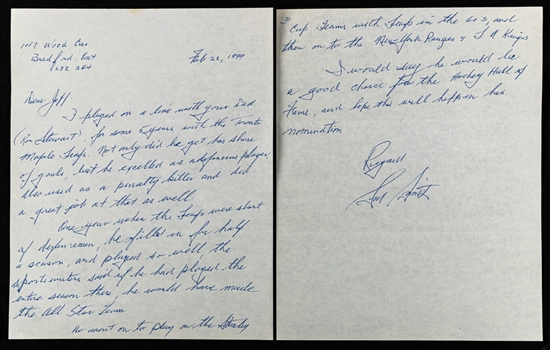 Feb 22, 1999
Dear Jeff
I played on a line with your Dad
(Ron Stewart) for some 6 years with the Toronto
Maple Leafs. Not only did he get his share
of goals, but he excelled as a defensive player.
Also used as a penalty killer and did
a great job at that as well.
One year when the Leafs were short
of defensemen, he filled in for half
a season, and played so well, the
sportswriters said if he had played the
entire season there, he would have made
the All Star Team
He went on to play on the Stanley
3)
Cup Teams with Leafs in the 60s, and
then on to the New York Rangers & L A Kings
I would say he would be
a good choice for the Hockey Hall of
Fame, and hope this will happen his
nomination
Regards
Sid Smith